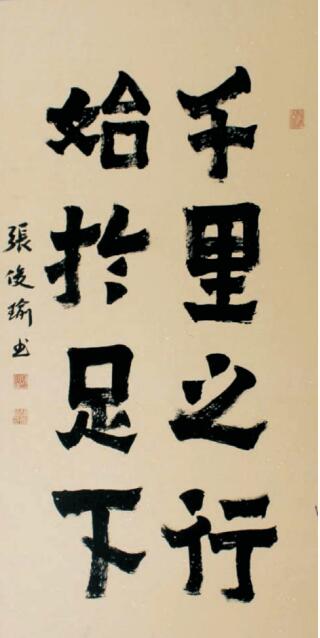 千里之行
始於足下
張俊瑜书